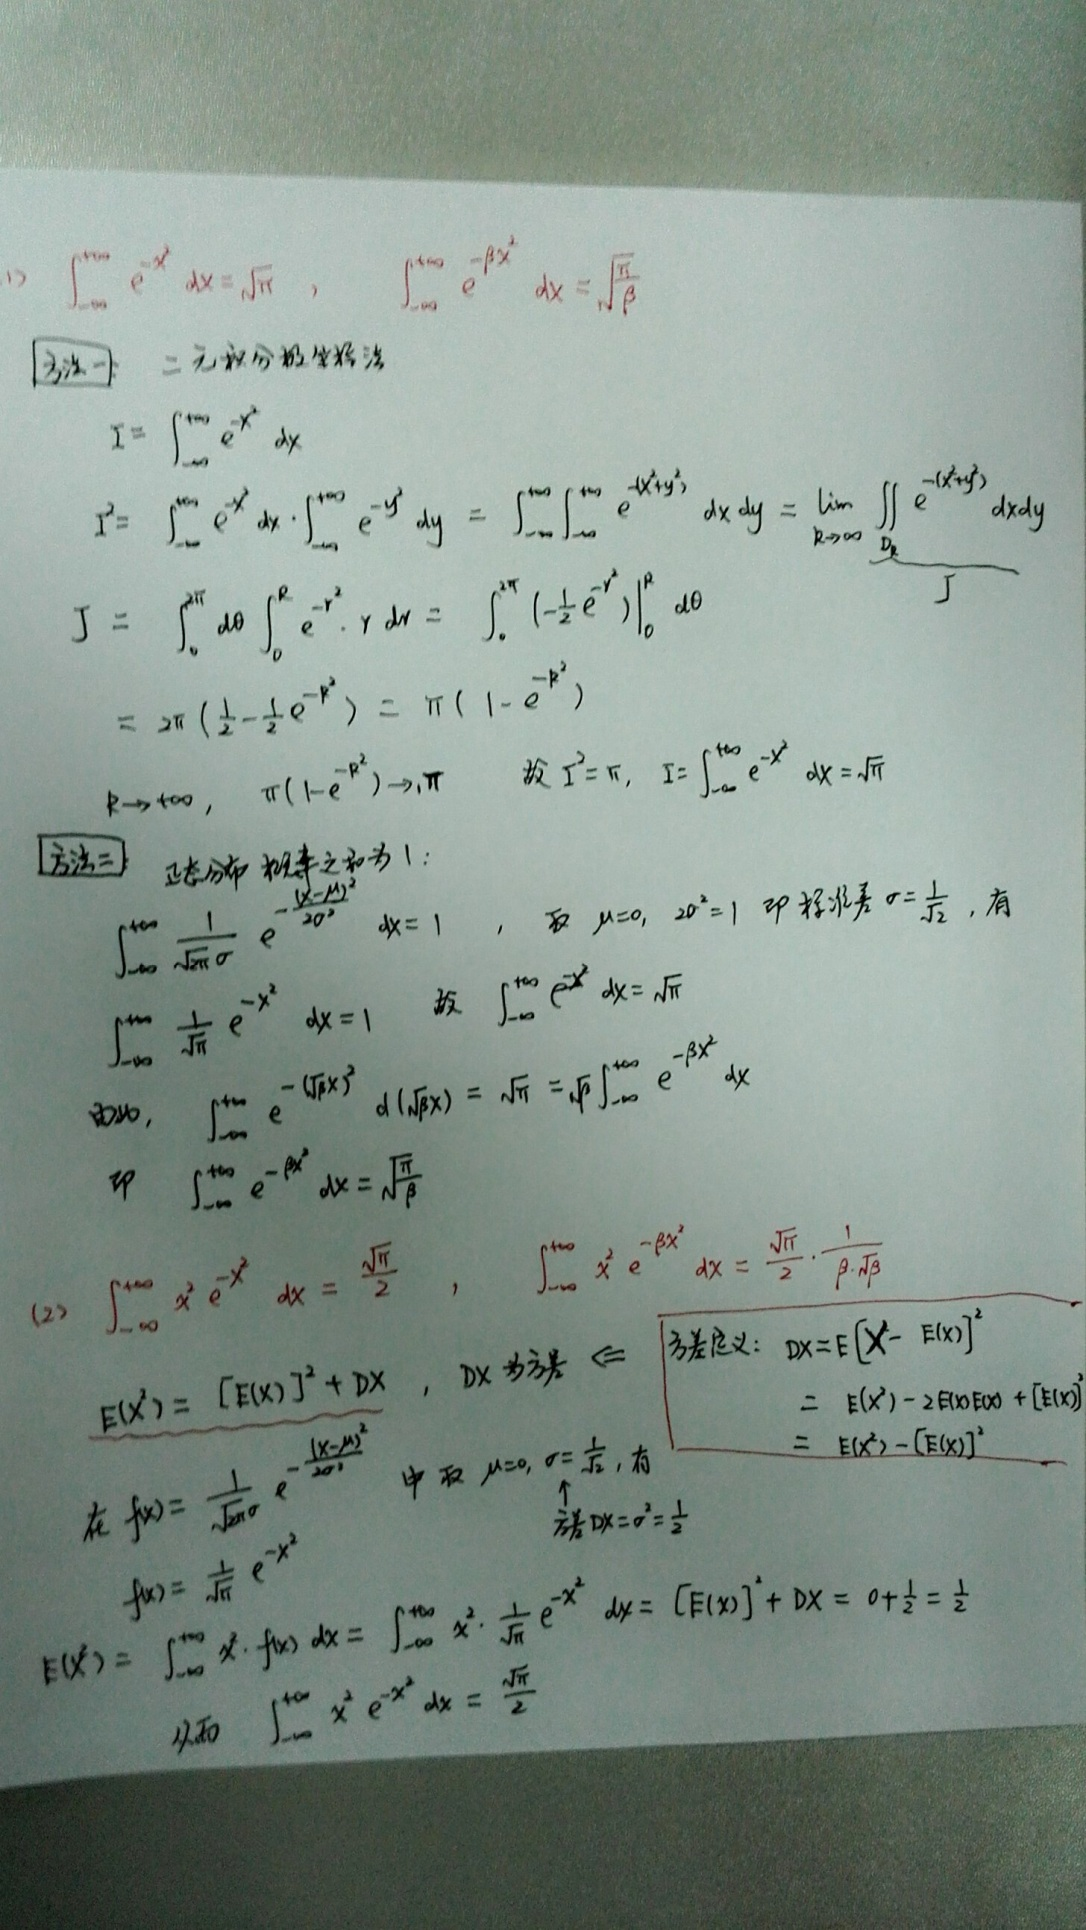 (1) ∫_{-∞}^{+∞} e^{-x²} dx = √π , ∫_{-∞}^{+∞} e^{-βx²} dx = √(π/β)
方法一: 二元积分极坐标法
I = ∫_{-∞}^{+∞} e^{-x²} dx
I² = ∫_{-∞}^{+∞} e^{-x²} dx · ∫_{-∞}^{+∞} e^{-y²} dy = ∫_{-∞}^{+∞} ∫_{-∞}^{+∞} e^{-(x²+y²)} dx dy = lim_{R→∞} ∬_{D_R} e^{-(x²+y²)} dxdy
J
J = ∫_0^{2π} dθ ∫_0^R e^{-r²} · r dr = ∫_0^{2π} (-1/2 e^{-r²})|_0^R dθ
= 2π(1/2 - 1/2 e^{-R²}) = π(1 - e^{-R²})
R→+∞, π(1-e^{-R²})→π 故 I²=π, I = ∫_{-∞}^{+∞} e^{-x²} dx = √π
方法二: 正态分布概率之和为1:
∫_{-∞}^{+∞} 1/(√(2π)σ) e^{-(x-μ)²/2σ²} dx = 1 , 取 μ=0, 2σ²=1 即标准差 σ=1/√2, 有
∫_{-∞}^{+∞} 1/√π e^{-x²} dx = 1 故 ∫_{-∞}^{+∞} e^{-x²} dx = √π
因此, ∫_{-∞}^{+∞} e^{-(√βx)²} d(√βx) = √π = √β ∫_{-∞}^{+∞} e^{-βx²} dx
即 ∫_{-∞}^{+∞} e^{-βx²} dx = √(π/β)
(2) ∫_{-∞}^{+∞} x² e^{-x²} dx = √π/2 , ∫_{-∞}^{+∞} x² e^{-βx²} dx = √π/2 · 1/(β·√β)
E(X²) = [E(X)]² + DX , DX为方差 ⇐ 方差定义: DX = E[X - E(X)]²
= E(X²) - 2E(X)E(X) + [E(X)]²
= E(X²) - [E(X)]²
在 f(x) = 1/(√(2π)σ) e^{-(x-μ)²/2σ²} 中取 μ=0, σ=1/√2, 有
↑
方差 DX=σ²=1/2
f(x) = 1/√π e^{-x²}
E(X²) = ∫_{-∞}^{+∞} x²·f(x) dx = ∫_{-∞}^{+∞} x²·1/√π e^{-x²} dx = [E(X)]² + DX = 0+1/2 = 1/2
从而 ∫_{-∞}^{+∞} x² e^{-x²} dx = √π/2